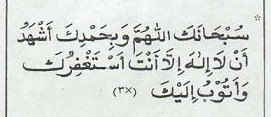 سُبْحَانَكَ اللّٰهُمَّ وَبِحَمْدِكَ أَشْهَدُ
أَنْ لَا إِلٰهَ إِلَّا أَنْتَ أَسْتَغْفِرُكَ
وَأَتُوْبُ إِلَيْكَ (×٣)